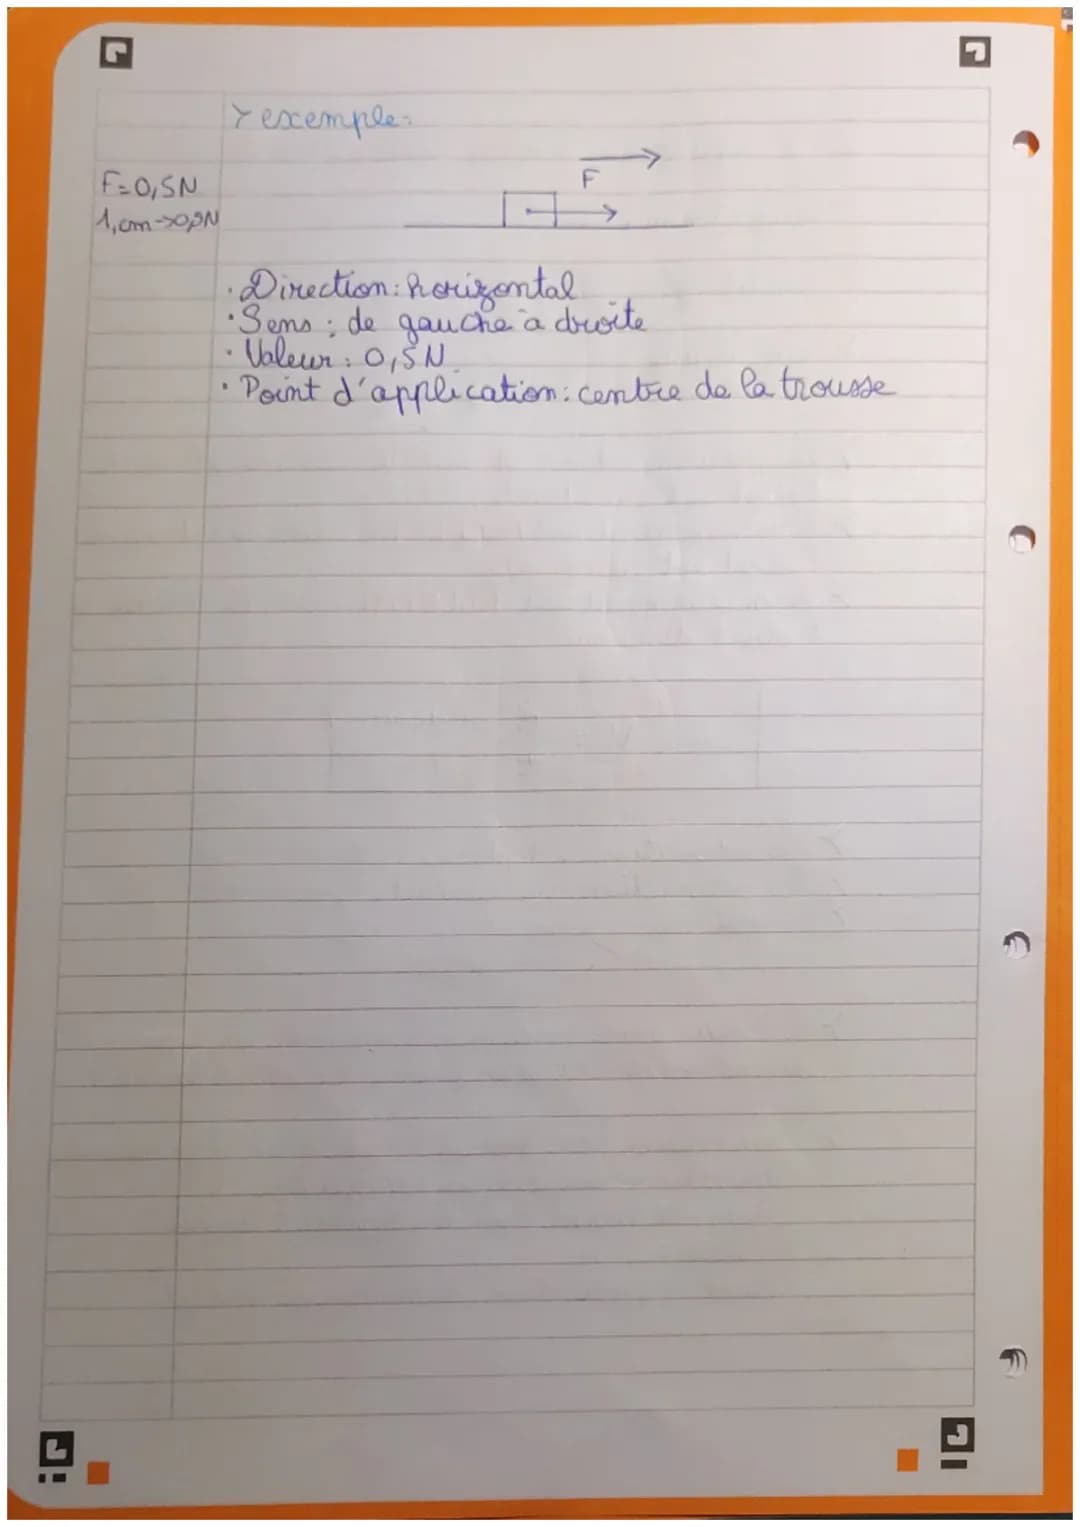 > exemple:
F
F=0,5N
1,cm->
• Direction: horizontal
• Sens : de gauche à droite
• Valeur : 0,5N
• Point d'application: centre de la trousse